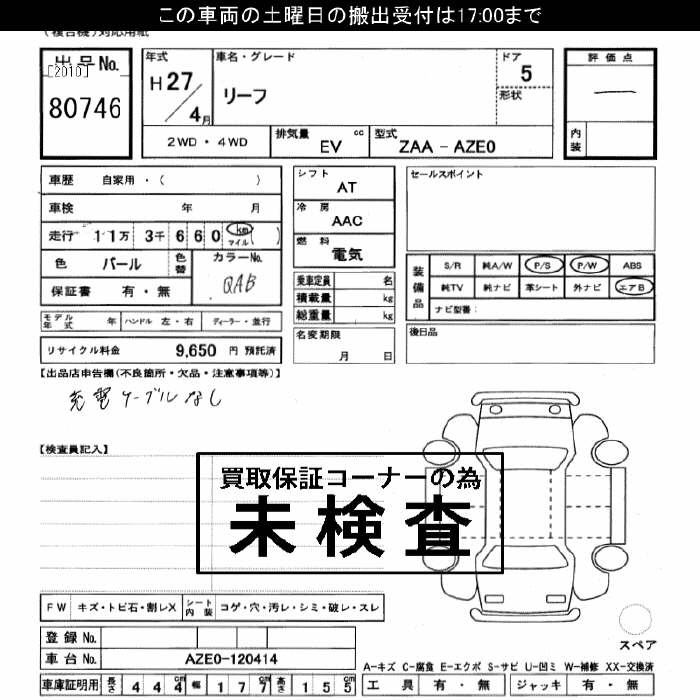 この車両の土曜日の搬出受付は17:00まで
(複合機)対応用紙
出品No.
[2010]
80746
年式
H27/4月
車名・グレード
リーフ
ドア
5
形状
評価点
内装
2WD・4WD
排気量 cc
EV
型式
ZAA－AZE0
車歴 自家用・( )
車検 年 月
走行 11万 3千 6 6 0 km マイル ( )
色 パール 色替 カラーNo.
QAB
保証書 有・無
モデル年式 年 ハンドル 左・右 ディーラー・並行
リサイクル料金 9,650 円 預託済
シフト
AT
冷房
AAC
燃料
電気
乗車定員 名
積載量 kg
総重量 kg
名変期限
月 日
セールスポイント
装備品
S/R 純A/W P/S P/W ABS
純TV 純ナビ 革シート 外ナビ エアB
ナビ型番：
後日品
【出品店申告欄(不良箇所・欠品・注意事項等)】
充電ケーブルなし
【検査員記入】
買取保証コーナーの為
未検査
FW キズ・トビ石・割レX シート内装 コゲ・穴・汚レ・シミ・破レ・スレ
登録No.
車台No. AZE0-120414
車庫証明用 長さ 4 4 4 cm 幅 1 7 7 cm 高さ 1 5 5 cm
スペア
A-キズ C-腐食 E-エクボ S-サビ U-凹ミ W-補修 XX-交換済
工具 有・無 ジャッキ 有・無